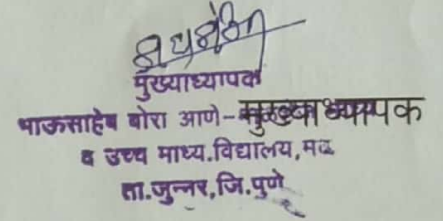 मुख्याध्यापक
भाऊसाहेब बोरा आणे-मुख्याध्यापक
व उच्च माध्य.विद्यालय, मढ
ता.जुन्नर, जि.पुणे